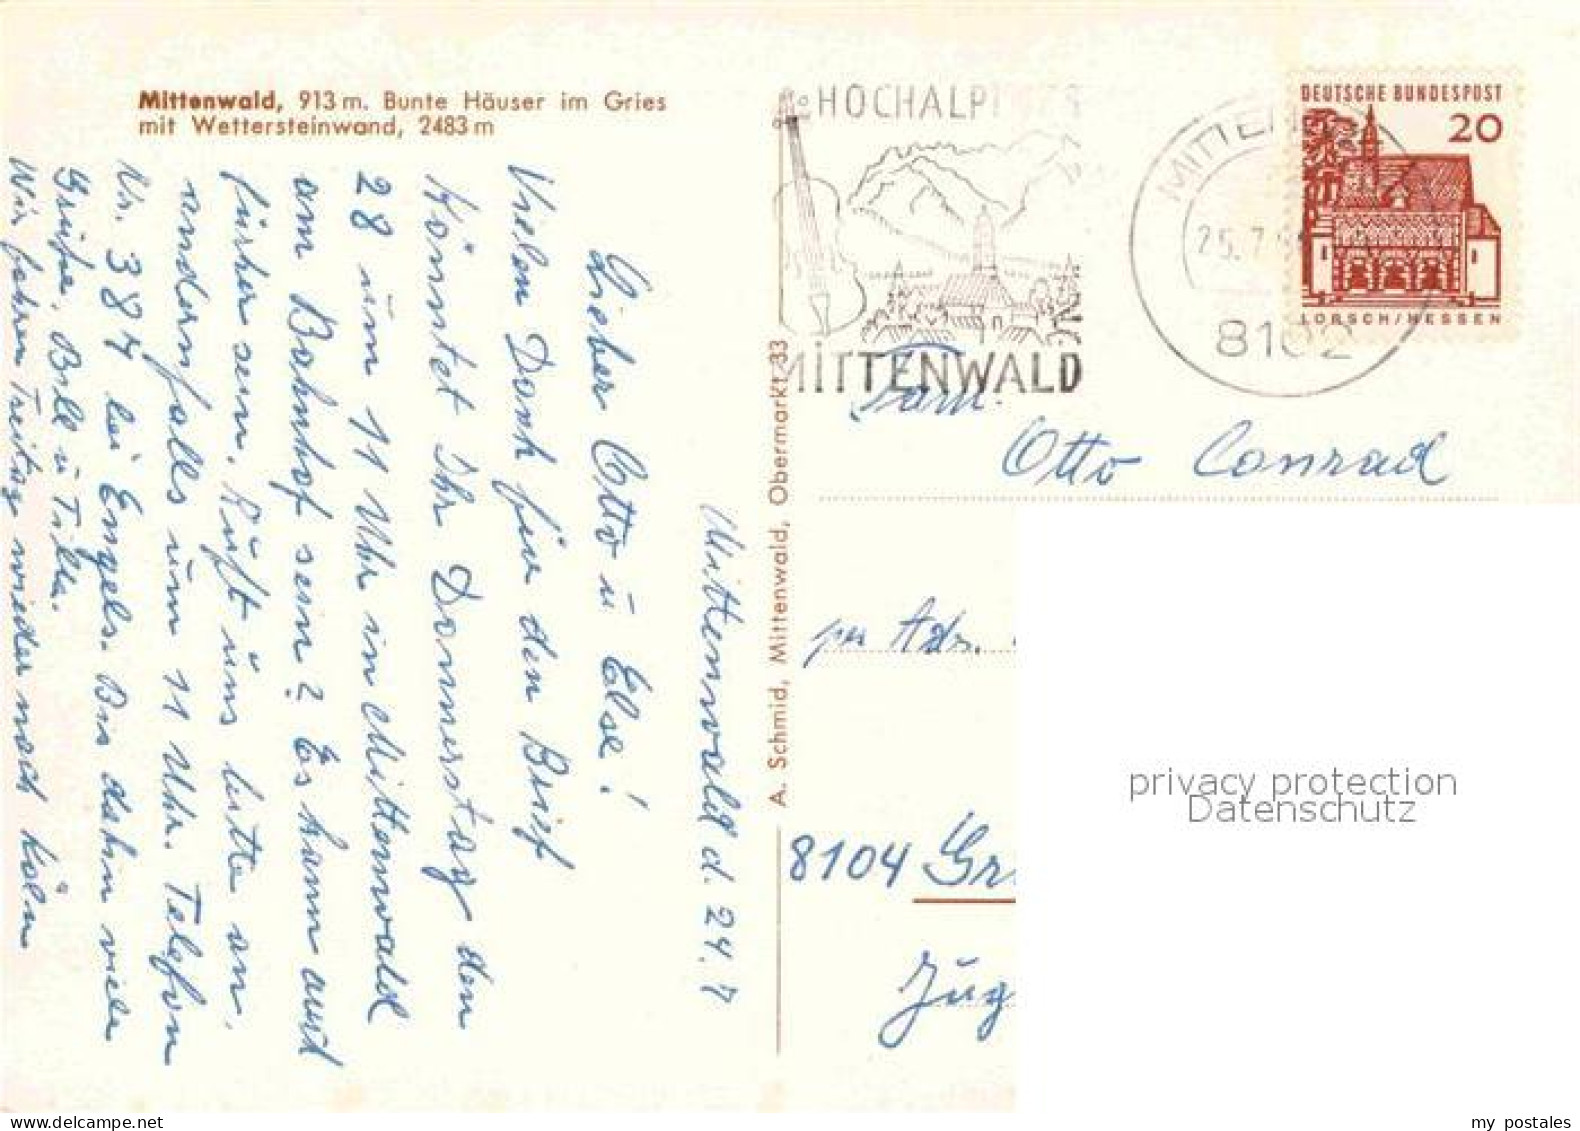 Mittenwald, 913 m. Bunte Häuser im Gries
mit Wettersteinwand, 2483 m
HOCHALP
MITTENWALD
MITTEN
25.7.
8102
DEUTSCHE BUNDESPOST
20
LORSCH/HESSEN
A. Schmid, Mittenwald, Obermarkt 33
Mittenwald d. 24.7
Lieber Otto ū Else!
Vielen Dank für den Brief
Könntet Ihr Donnerstag den
28 um 11 Uhr in Mittenwald
am Bahnhof sein? Es kann auch
früher sein. Ruft uns bitte an,
andernfalls um 11 Uhr. Telefon
Nr. 384 bei Engels. Bis dahin viele
Grüße, Bill ū Tilla.
Wir fahren Freitag wieder nach Köln
Fam.
Otto Conrad
per Adr.
8104 Gr
Zug
privacy protection
Datenschutz
my postales